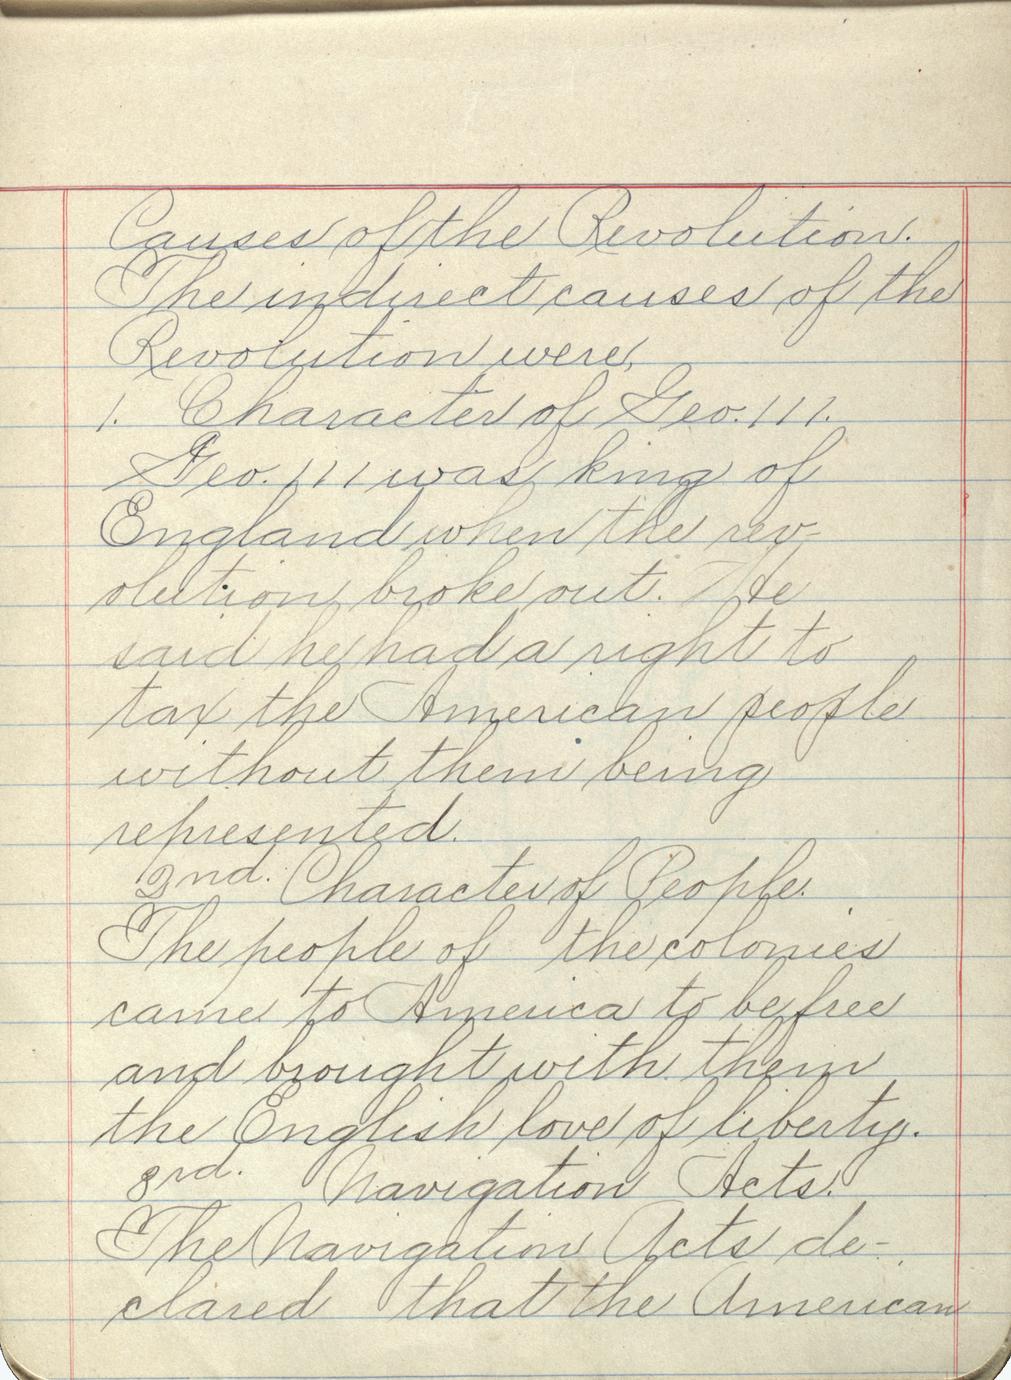 Causes of the Revolution.
The indirect causes of the
Revolution were,
1. Character of Geo. 111.
Geo. 111 was king of
England when the rev-
olution broke out. He
said he had a right to
tax the American people
without them being
represented.
2nd. Character of People.
The people of the colonies
came to America to be free
and brought with them
the English love of liberty.
3rd. Navigation Acts.
The Navigation Acts de-
clared that the American